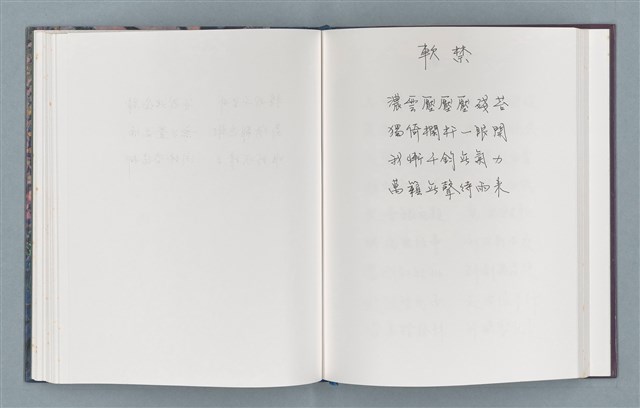 軟禁
濃雲壓壓壓殘苔
獨倚欄杆一眼開
我慚千鈞無氣力
萬籟無聲待雨来